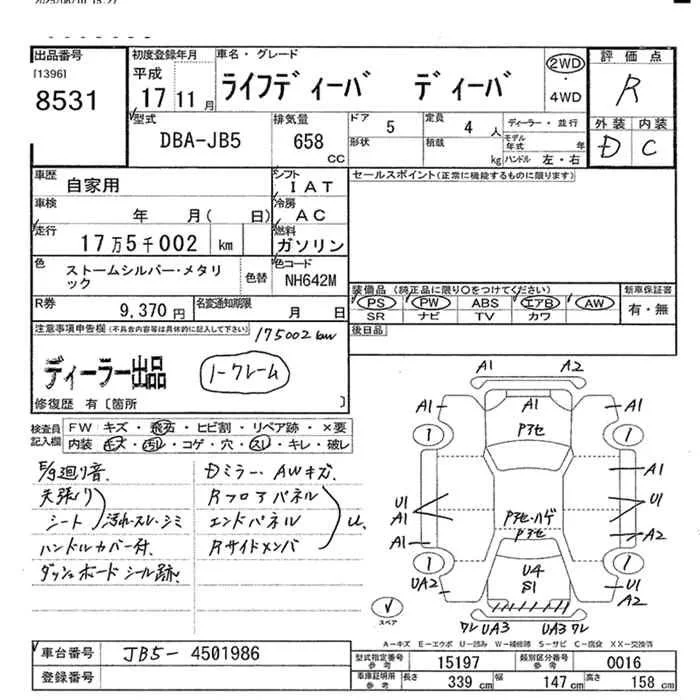 2025/08/10 15:27
出品番号
[1396]
8531
初度登録年月
平成
17 11月
車名・グレード
ライフディーバ ディーバ
2WD
・
4WD
評価点
R
外装 内装
D C
型式
DBA-JB5
排気量
658
CC
ドア
5
定員
4 人
形状
積載
kg
ディーラー・並行
モデル年式 年
ハンドル 左・右
車歴
自家用
シフト
IAT
車検
年 月( 日)
冷房
AC
走行
17万5千002 km
燃料
ガソリン
色
ストームシルバー・メタリック
色替
色コード
NH642M
R券
9,370 円
名変通知期限
月 日
セールスポイント(正常に機能するものに限ります)
装備品(純正品に限り○をつけてください)
PS PW ABS エアB AW
SR ナビ TV カワ
新車保証書
有・無
後日品
注意事項申告欄(不具合内容等は具体的に記入して下さい)
175002km
ディーラー出品
ノークレーム
修復歴 有〔箇所 〕
検査員記入欄
FW キズ・飛石・ヒビ割・リペア跡・×要
内装 キズ・汚れ・コゲ・穴・スレ・キレ・破レ
E/g廻り音
天張り
シート 汚れ・スレ・シミ
ハンドルカバー付
ダッシュボード シール跡
Dミラー・AWキズ
Rフロアパネル
エンドパネル
Rサイドメンバ
U
A1 A2
A1 A1 A1
P3セ
1 1
A1
U1
A1
U1
P3セ・ハゲ
P3セ
A1 A2
1 1
UA2 U4 U1
S1 A2
ワレ UA3 UA3 ワレ
スペア
A-キズ E-エクボ U-凹み W-補修跡 S-サビ C-腐食 XX-交換済
車台番号
JB5-4501986
登録番号
型式指定番号
参考
15197
類別区分番号
参考
0016
車庫証明用
参考
長さ
339 cm
幅
147 cm
高さ
158 cm